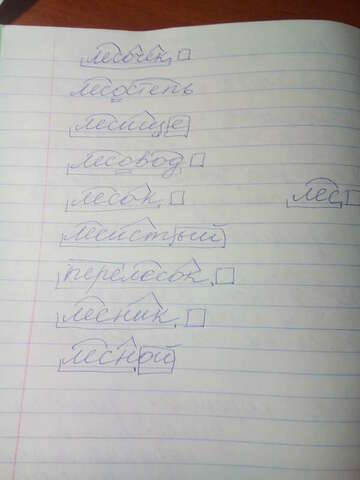 лесочек
лесостепь
лесище
лесовод
лесок
лес
лесистый
перелесок
лесник
лесной